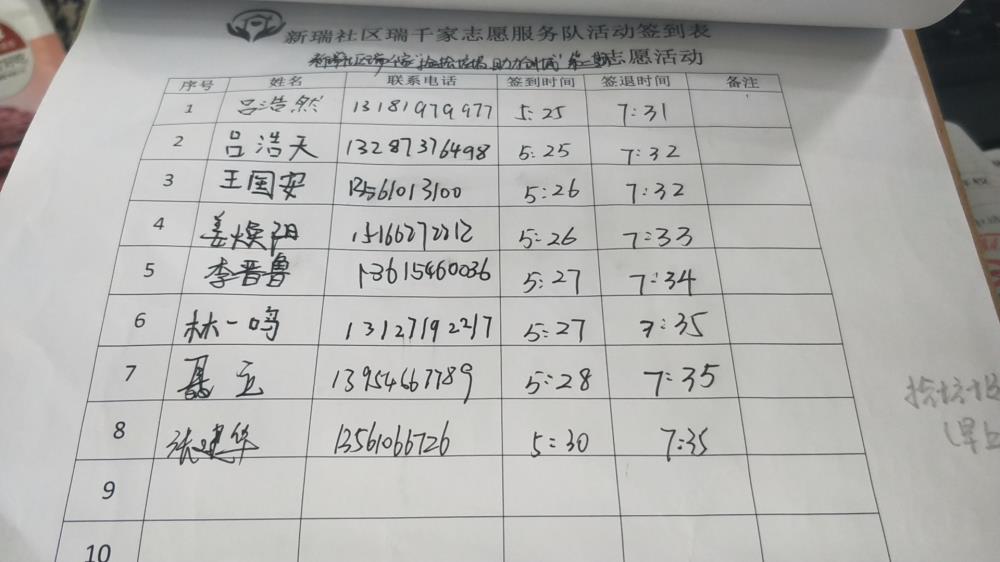 新瑞社区瑞千家志愿服务队活动签到表
新瑞社区 助力创城 第二期志愿活动
序号 姓名 联系电话 签到时间 签退时间 备注
1 吕浩然 13181979977 5:25 7:31
2 吕浩天 13287376498 5:25 7:32
3 王国安 13561013100 5:26 7:32
4 姜焕阳 15166272212 5:26 7:33
5 李晋鲁 13615460036 5:27 7:34
6 林一鸣 13127192217 5:27 7:35
7 聂立 13954667789 5:28 7:35
8 张建华 13561066726 5:30 7:35
9
10